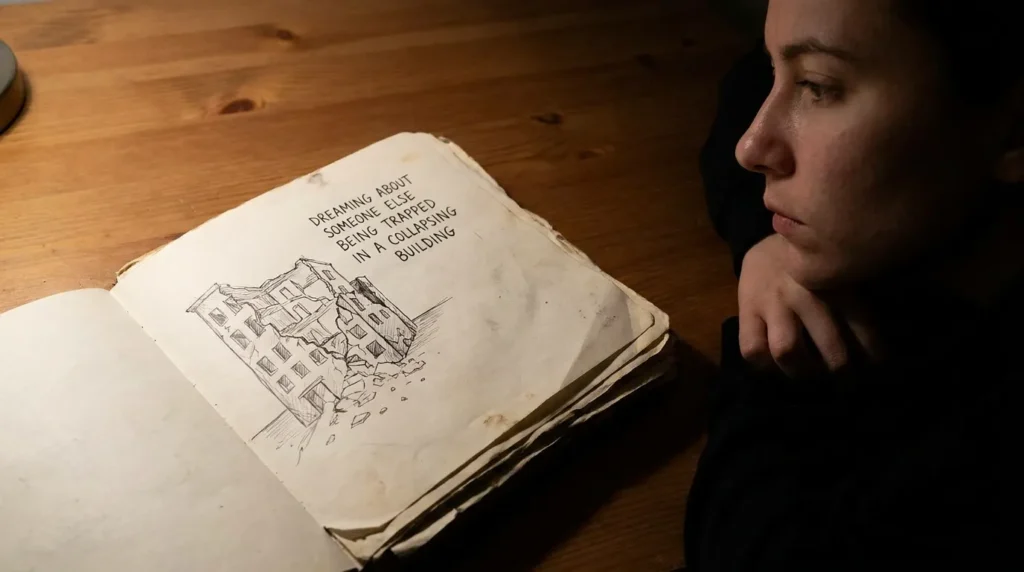 DREAMING ABOUT
SOMEONE ELSE
BEING TRAPPED
IN A COLLAPSING
BUILDING